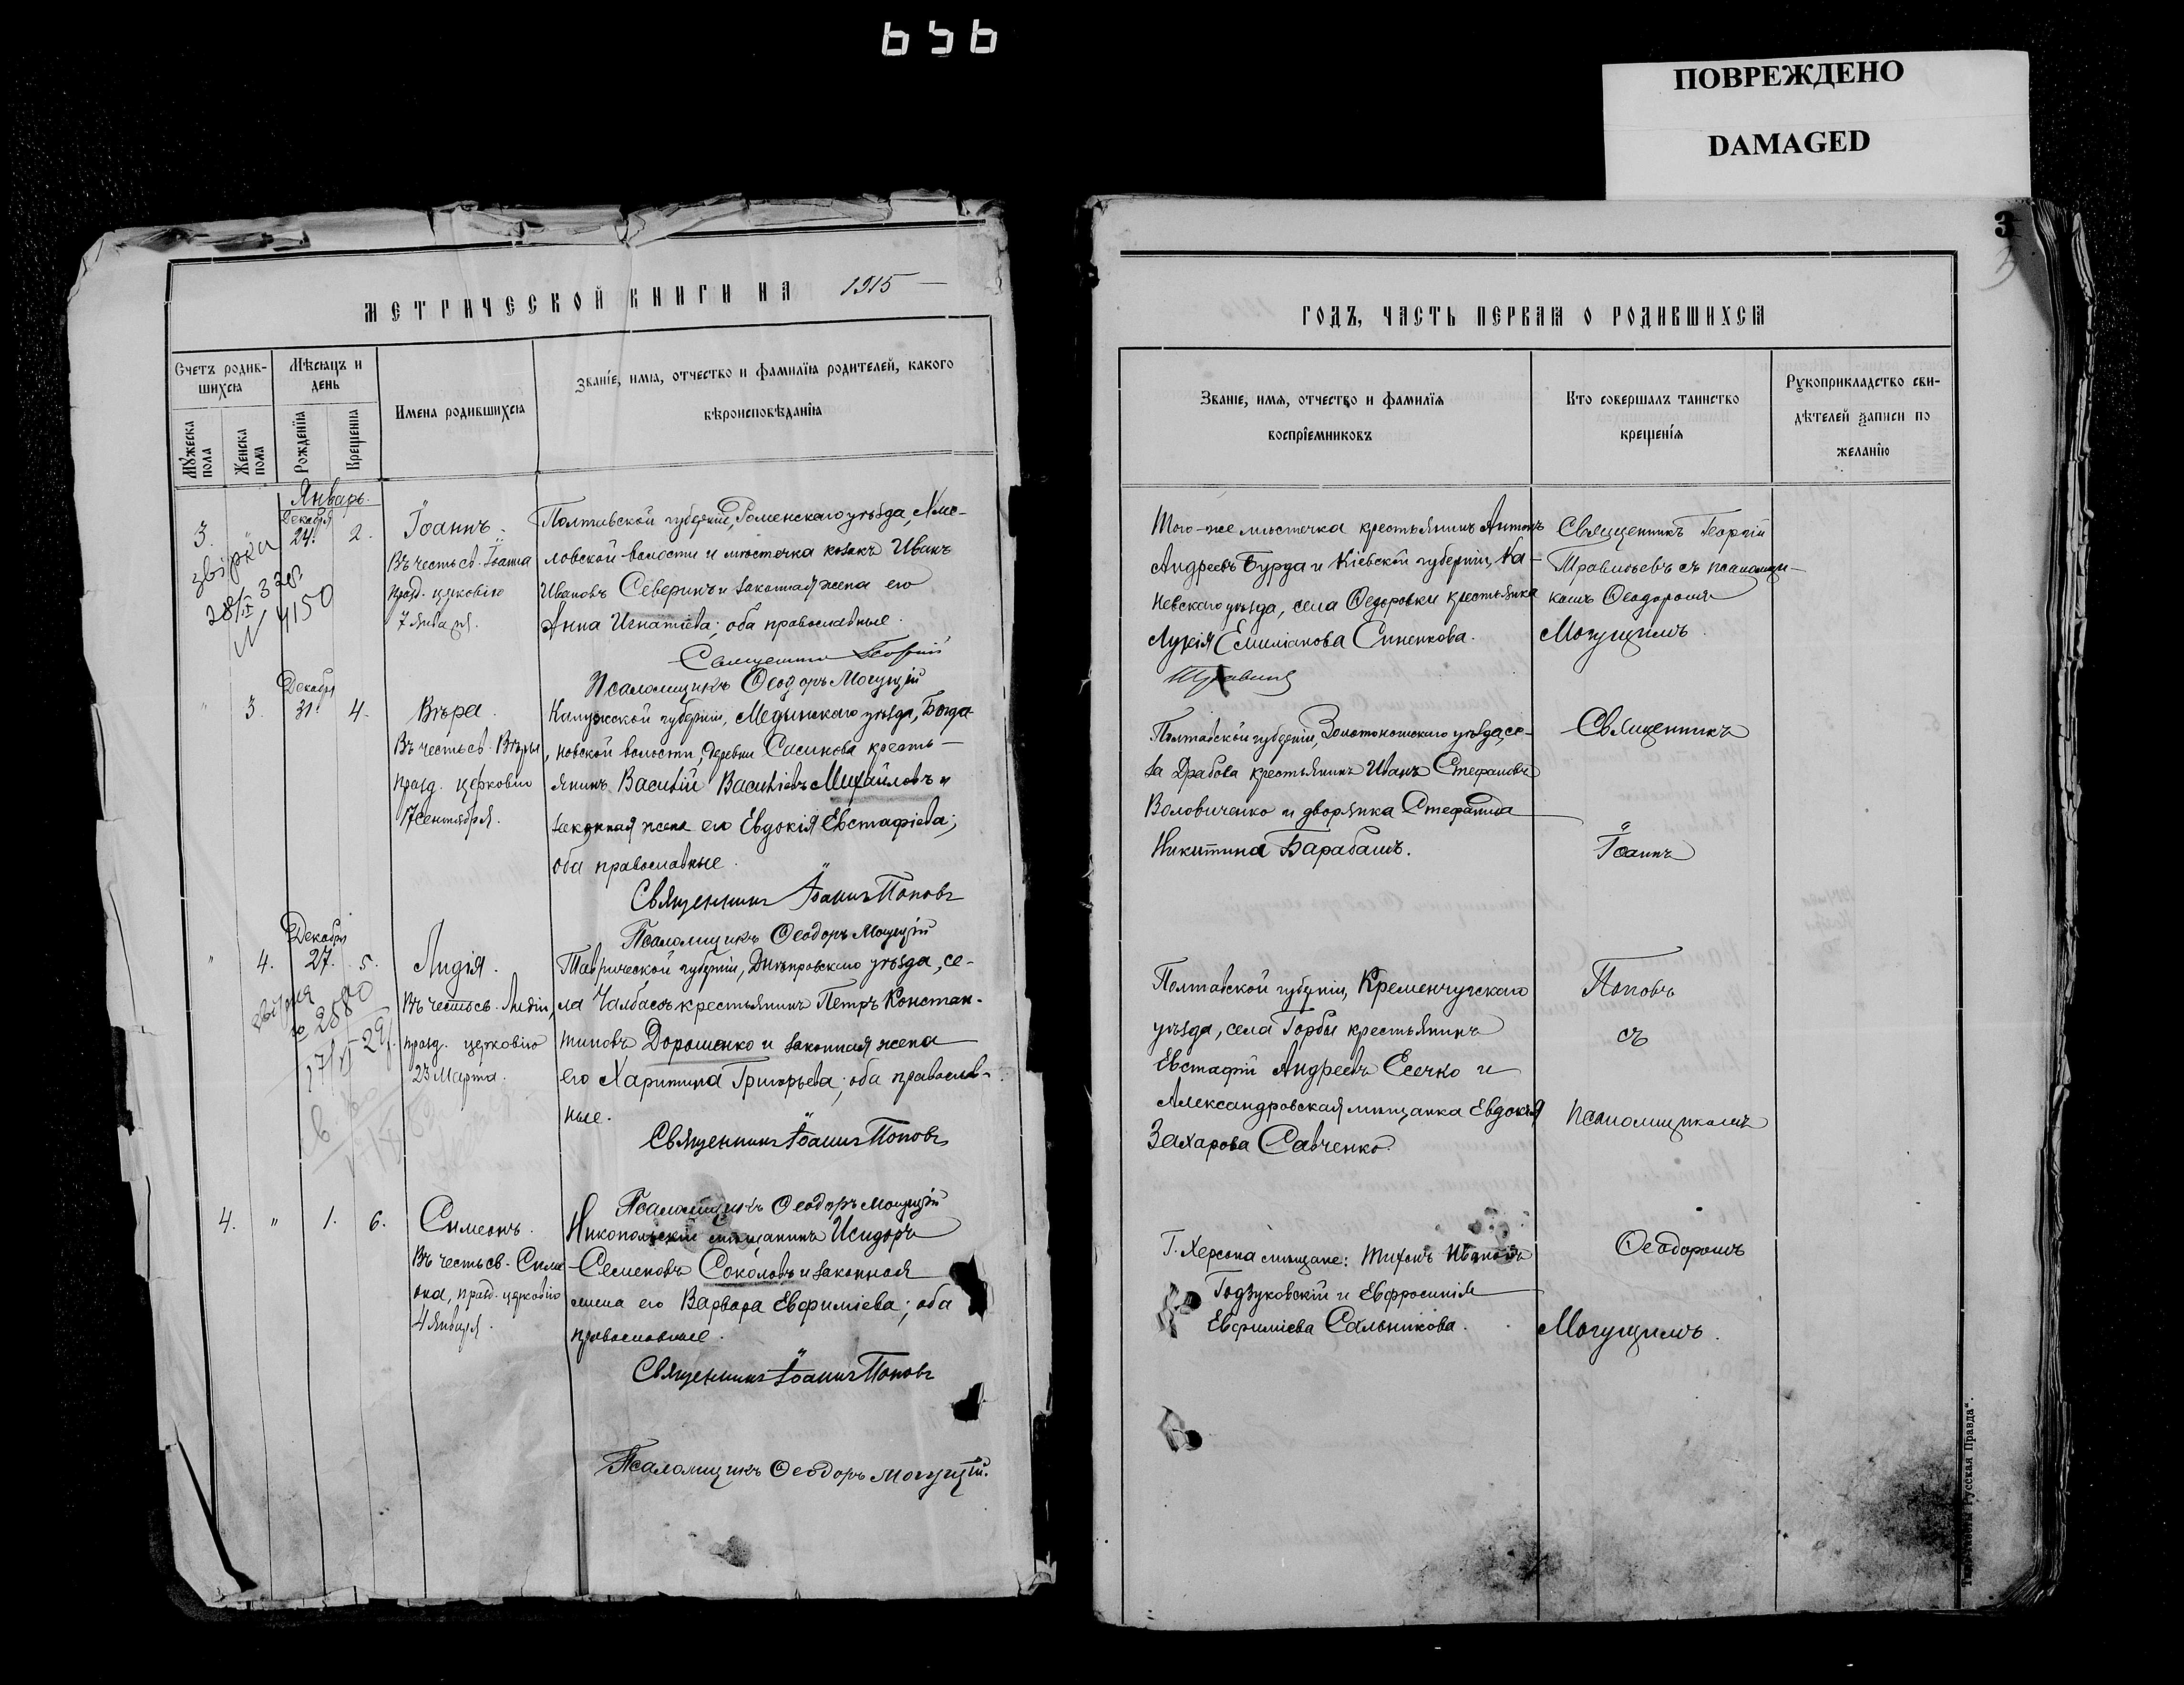 656
ПОВРЕЖДЕНО
DAMAGED
МЕТРИЧЕСКОЙ КНИГИ НА 1915
Счетъ родив-
шихся
Мѣсяцъ и
день
Имена родившихся
Званіе, имя, отчество и фамилія родителей, какого
вѣроисповѣданія
Мужеска
пола
Женска
пола
Рожденія
Крещенія
Январь.
Декабря
3.
24.
2.
Іоаннъ.
Въ честь св. Іоанна
празд. церковію
7 января.
Полтавской губерніи, Роменскаго уѣзда,
ловской волости и мѣстечка козакъ Иванъ
Ивановъ Северинъ и законная жена его
Анна Игнатіева; оба православные.
Священникъ Георгій
Псаломщикъ Ѳеодоръ Могущій
звірка
28/IX 37 р.
N 4150
Декабря
" 3. 31. 4.
Вѣра.
Въ честь св. Вѣры,
празд. церковію
17 сентября.
Калужской губерніи, Медынскаго уѣзда, Богда-
новской волости, деревни Сасинова кресть-
янинъ Василій Васильевъ Михайловъ и
законная жена его Евдокія Евстафіева;
оба православные.
Священникъ Іоаннъ Поповъ
Псаломщикъ Ѳеодоръ Могущій
Декабря
" 4. 27. 5.
Лидія.
Въ честь св. Лидіи,
празд. церковію
23 Марта.
Таврической губерніи, Днѣпровскаго уѣзда, се-
ла Чалбасъ крестьянинъ Петръ Констан-
тиновъ Дорошенко и законная жена
его Харитина Григорьева; оба православ-
ные.
Священникъ Іоаннъ Поповъ
Псаломщикъ Ѳеодоръ Могущій
2880
4. " 1. 6.
Симеонъ.
Въ честь св. Симе-
она, празд. церковію
4 января.
Никопольскій мѣщанинъ Исидоръ
Семеновъ Соколовъ и законная
жена его Варвара Евфиміева; оба
православные.
Священникъ Іоаннъ Поповъ
Псаломщикъ Ѳеодоръ Могущій.
3
ГОДЪ, ЧАСТЬ ПЕРВАЯ О РОДИВШИХСЯ
Званіе, имя, отчество и фамилія
воспріемниковъ
Кто совершалъ таинство
крещенія
Рукоприкладство сви-
дѣтелей записи по
желанію
Того-же мѣстечка крестьянинъ Антонъ
Андреевъ Бурда и Кіевской губерніи, Ка-
невскаго уѣзда, села Ѳедоровки крестьянка
Лукія Емиліанова Синенкова.
Священникъ Георгій
съ псаломщи-
комъ Ѳеодоромъ
Могущимъ.
Полтавской губерніи, Золотоношскаго уѣзда, се-
ла Драбова крестьянинъ Иванъ Стефановъ
Воловиченко и дворянка Стефанида
Никитина Барабашъ.
Священникъ
Іоаннъ
Полтавской губерніи, Кременчугскаго
уѣзда, села Горбы крестьянинъ
Евстафій Андреевъ Есечко и
Александровская мѣщанка Евдокія
Захарова Савченко.
Поповъ
съ
псаломщикомъ
Г. Херсона мѣщане: Тихонъ Ивановъ
Годзуковскій и Евфросинія
Евфиміева Сальникова.
Ѳеодоромъ
Могущимъ.
Русская Правда“.